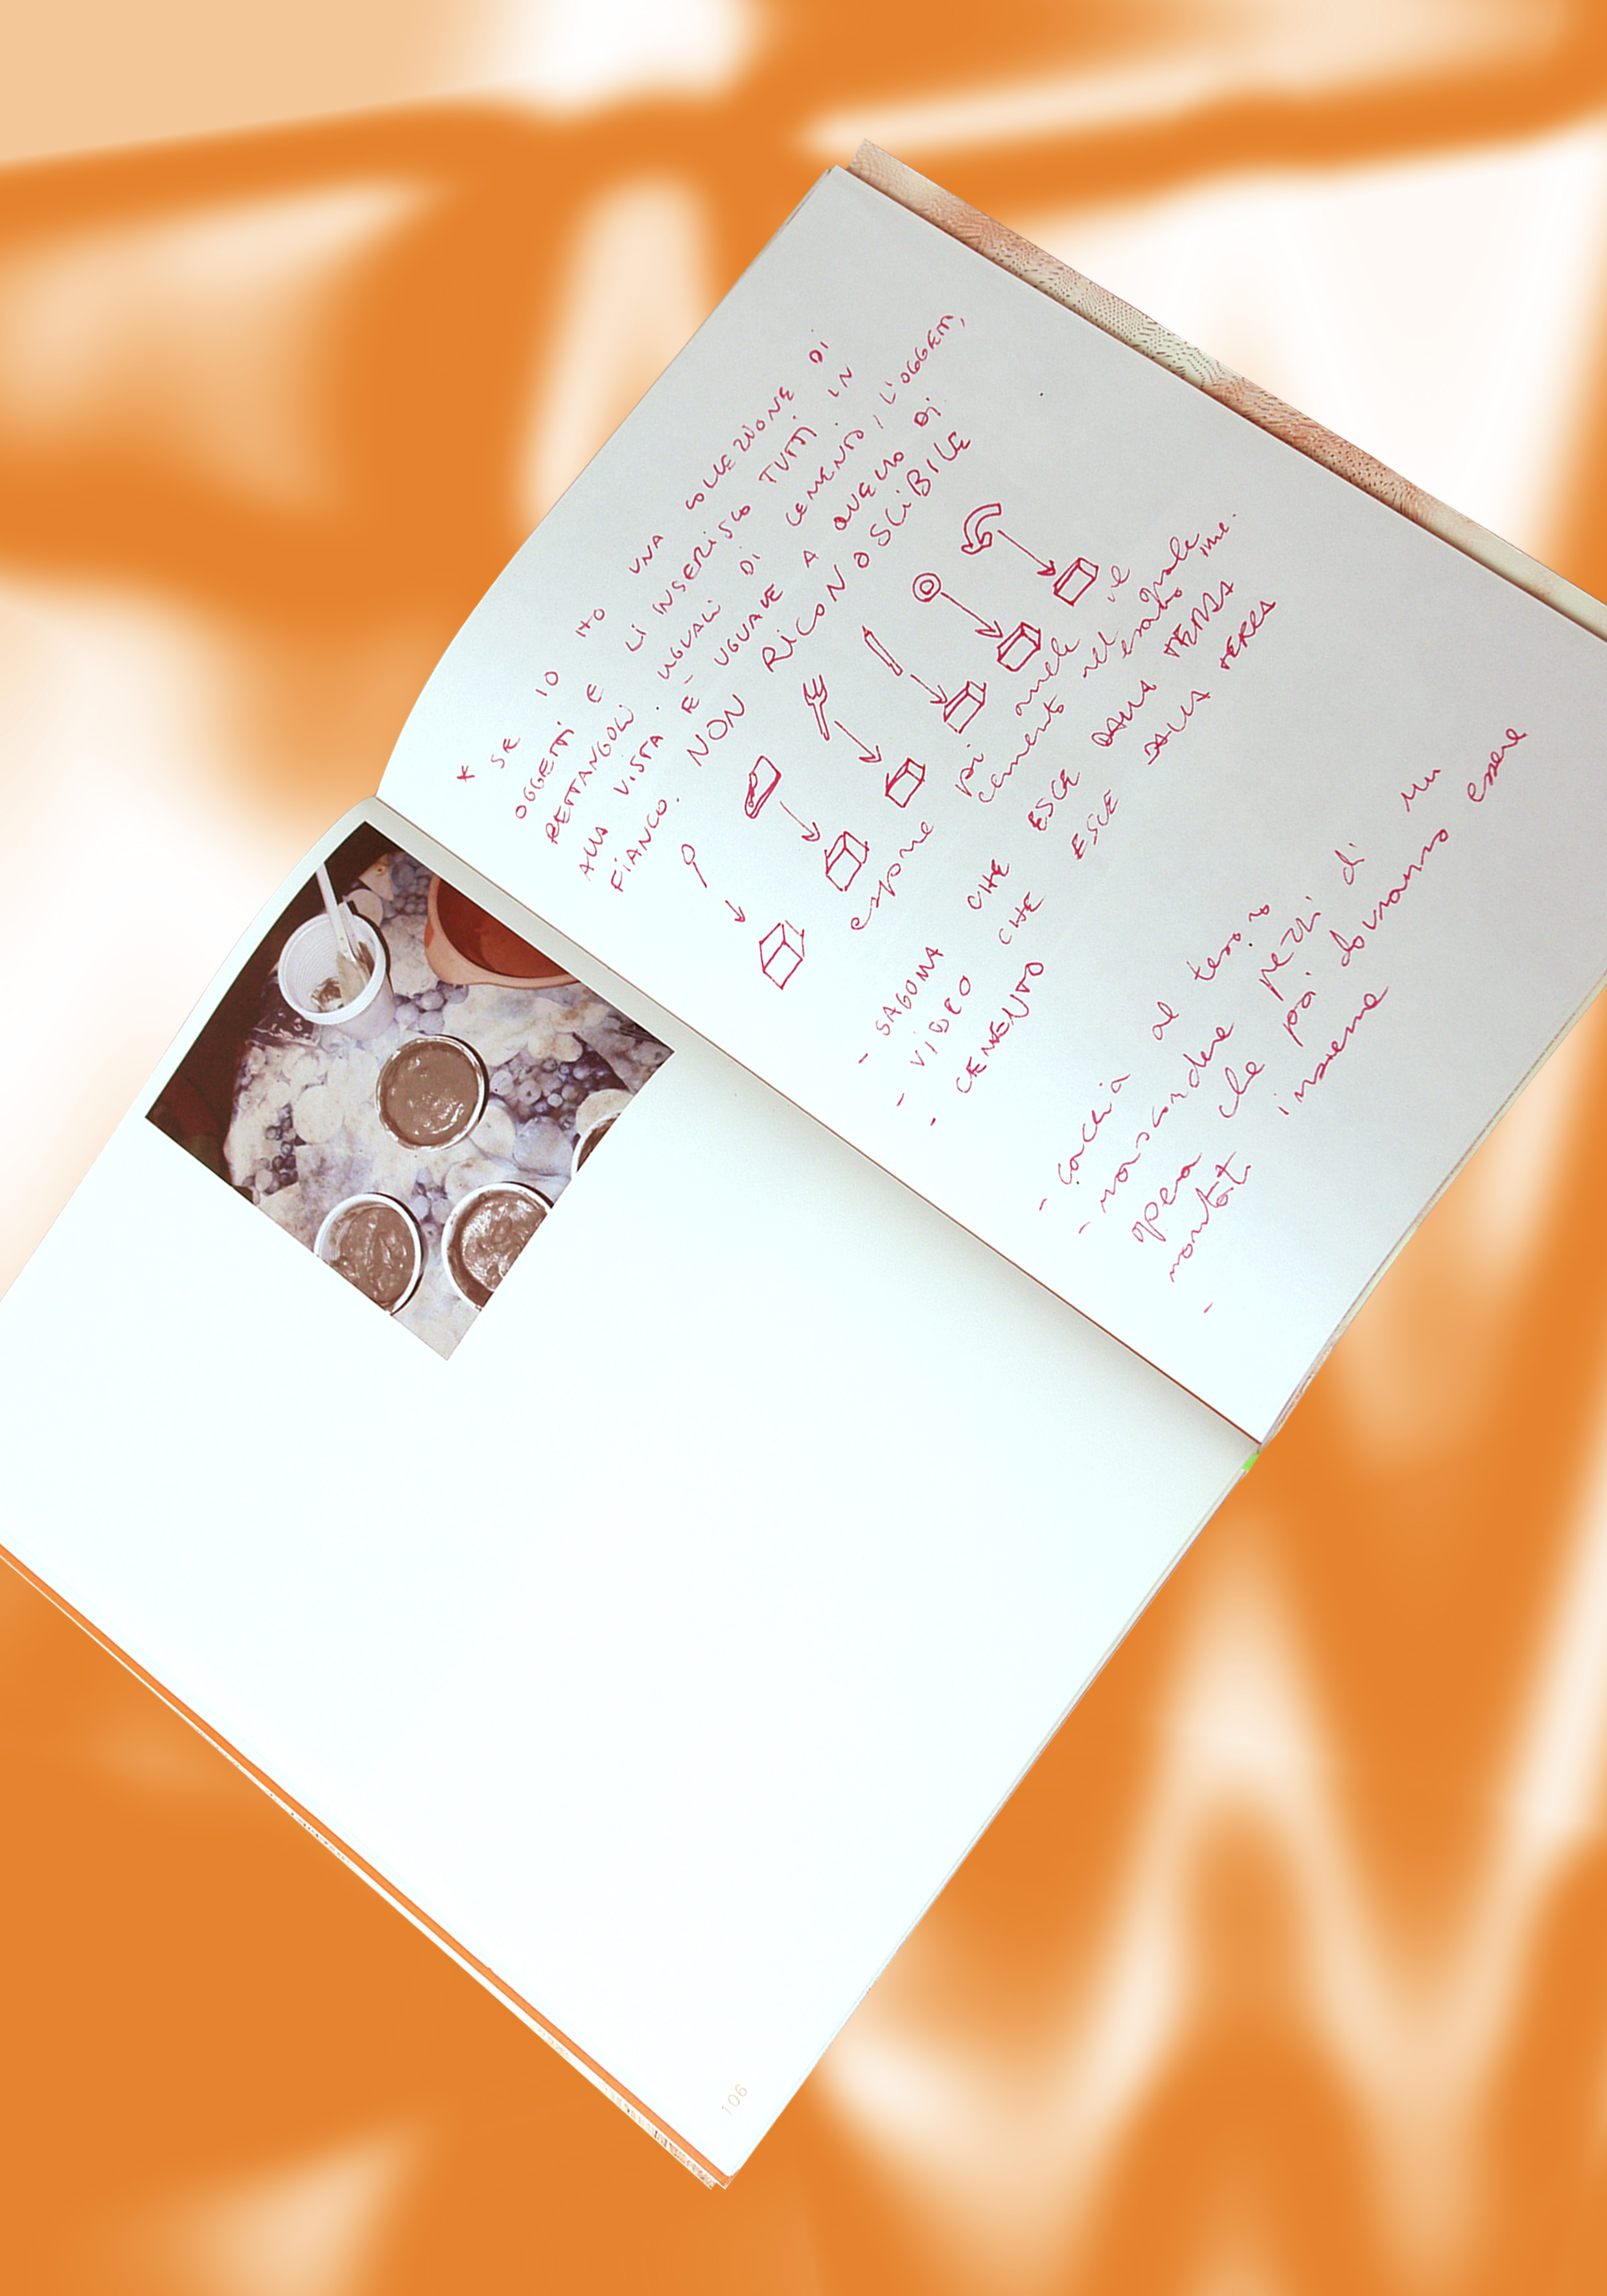 * SE IO HO UNA COLLEZIONE DI
OGGETTI E LI INSERISCO TUTTI IN
RETTANGOLI UGUALI DI CEMENTO, L'OGGETTO,
ALLA VISTA E' UGUALE A QUELLO DI
FIANCO. NON RICONOSCIBILE
espone poi anche il
cemento nel quale
esatto
- SAGOMA CHE ESCE DALLA TERRA
- VIDEO CHE ESCE DALLA TERRA
- CEMENTO
- caccia al tesoro
- nascondere pezzi di un
opera che poi dovranno essere
montati insieme
-
106